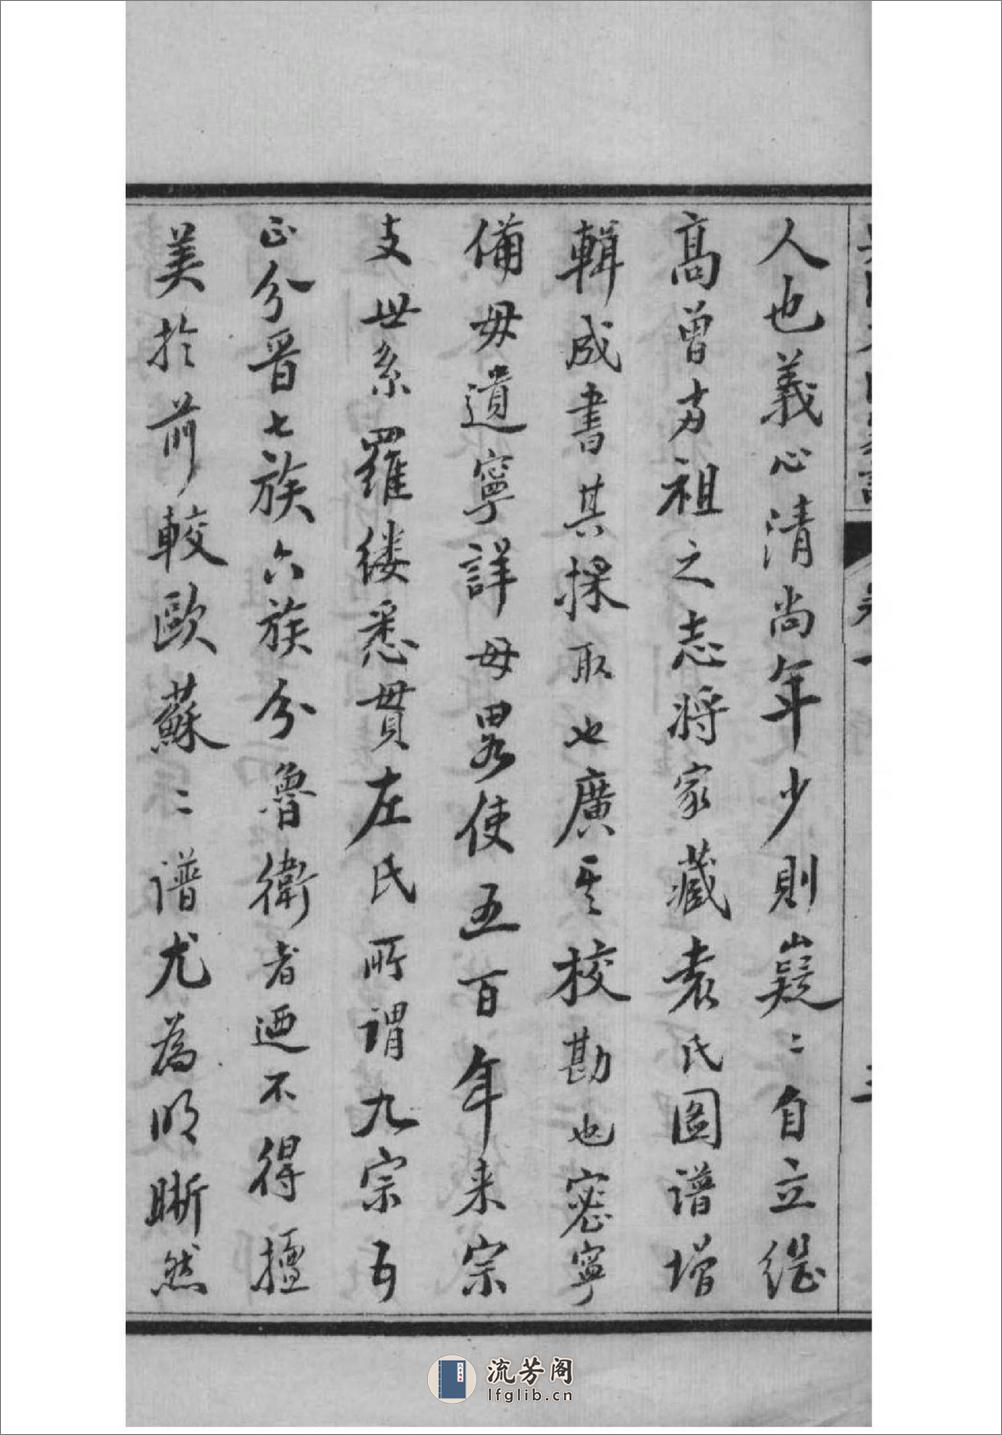 人也義心清尚年少則嶷〻自立繼
高曾方祖之志將家藏袁氏圖譜增
輯成書其採取也廣其校勘也密寧
備毋遺寧詳毋畧使五百年来宗
支世系羅縷悉貫左氏所謂九宗五
正分晋七族六族分魯衛者迺不得擅
美於前較歐蘇二譜尤為明晰然
流芳阁
lfglib.cn